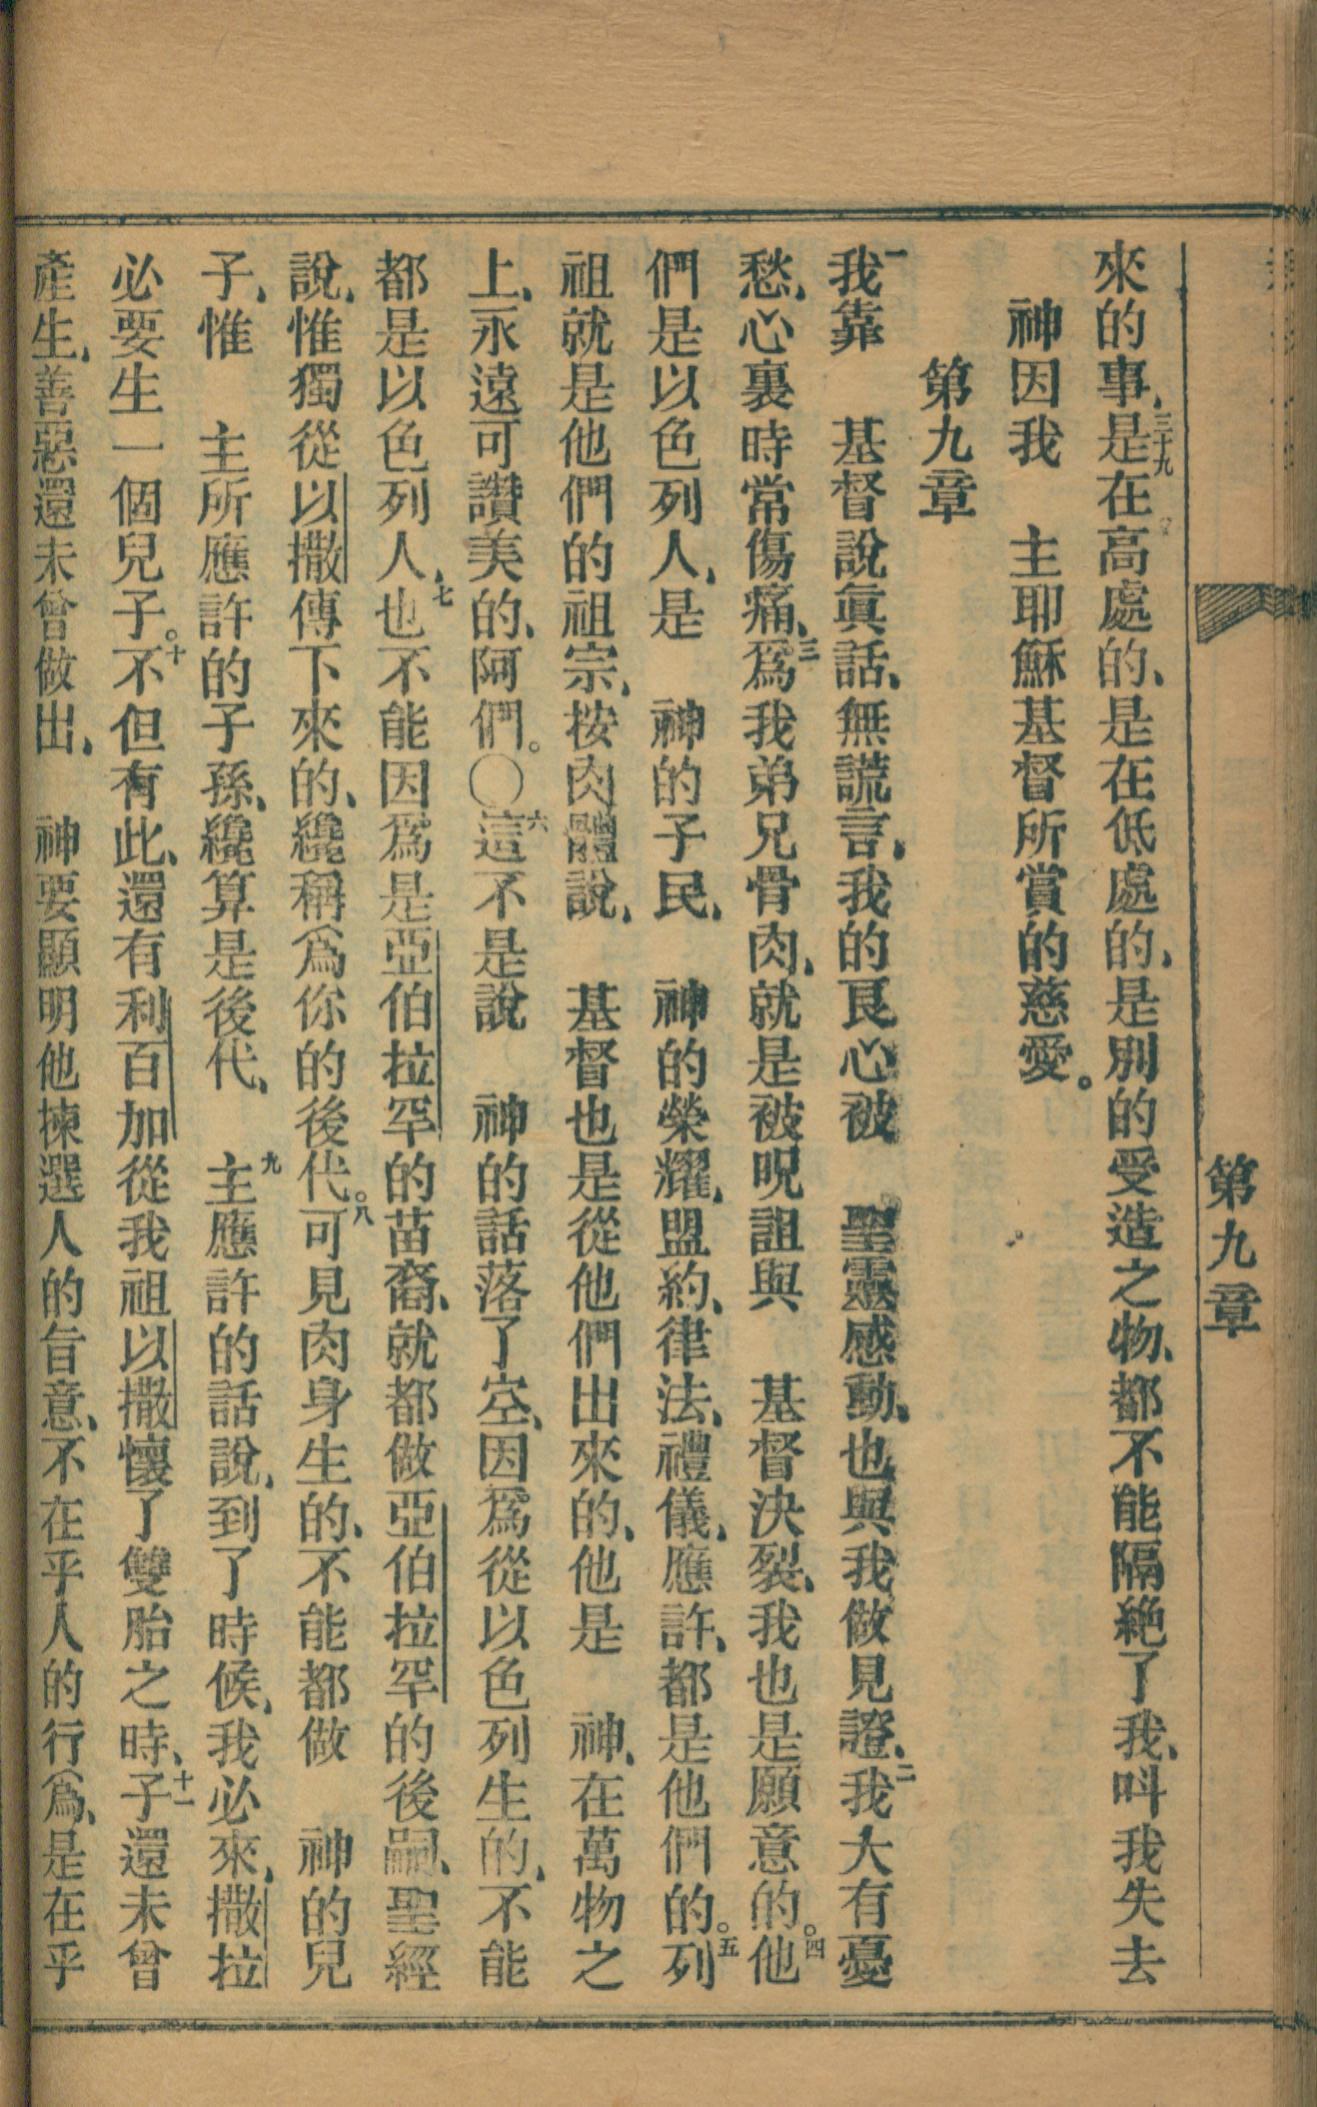 第九章
來的事、三十九是在高處的、是在低處的、是別的受造之物、都不能隔絶了我、呌我失去
神因我　主耶穌基督所賞的慈愛。
第九章
一我靠　基督說眞話、無謊言、我的艮心被　聖靈感動、也與我做見證、二我大有憂
愁、心裏時常傷痛、三爲我弟兄骨肉、就是被呪詛與　基督決裂、我也是願意的。四他
們是以色列人、是　神的子民、　神的榮耀、盟約、律法、禮儀、應許、都是他們的。五列
祖就是他們的祖宗、按肉體說、　基督也是從他們出來的、他是　神、在萬物之
上、永遠可讚美的、阿們。○六這不是說　神的話落了空、因爲從以色列生的、不能
都是以色列人、七也不能因爲是亞伯拉罕的苗裔、就都做亞伯拉罕的後嗣、聖經
說、惟獨從以撒傳下來的、纔稱爲你的後代。八可見肉身生的、不能都做　神的兒
子、惟　主所應許的子孫、纔算是後代、　九主應許的話說、到了時候、我必來、撒拉
必要生一個兒子。十不但有此、還有利百加從我祖以撒懷了雙胎之時、十一子還未曾
產生、善惡還未曾做出、　神要顯明他揀選人的旨意、不在乎人的行爲、是在乎